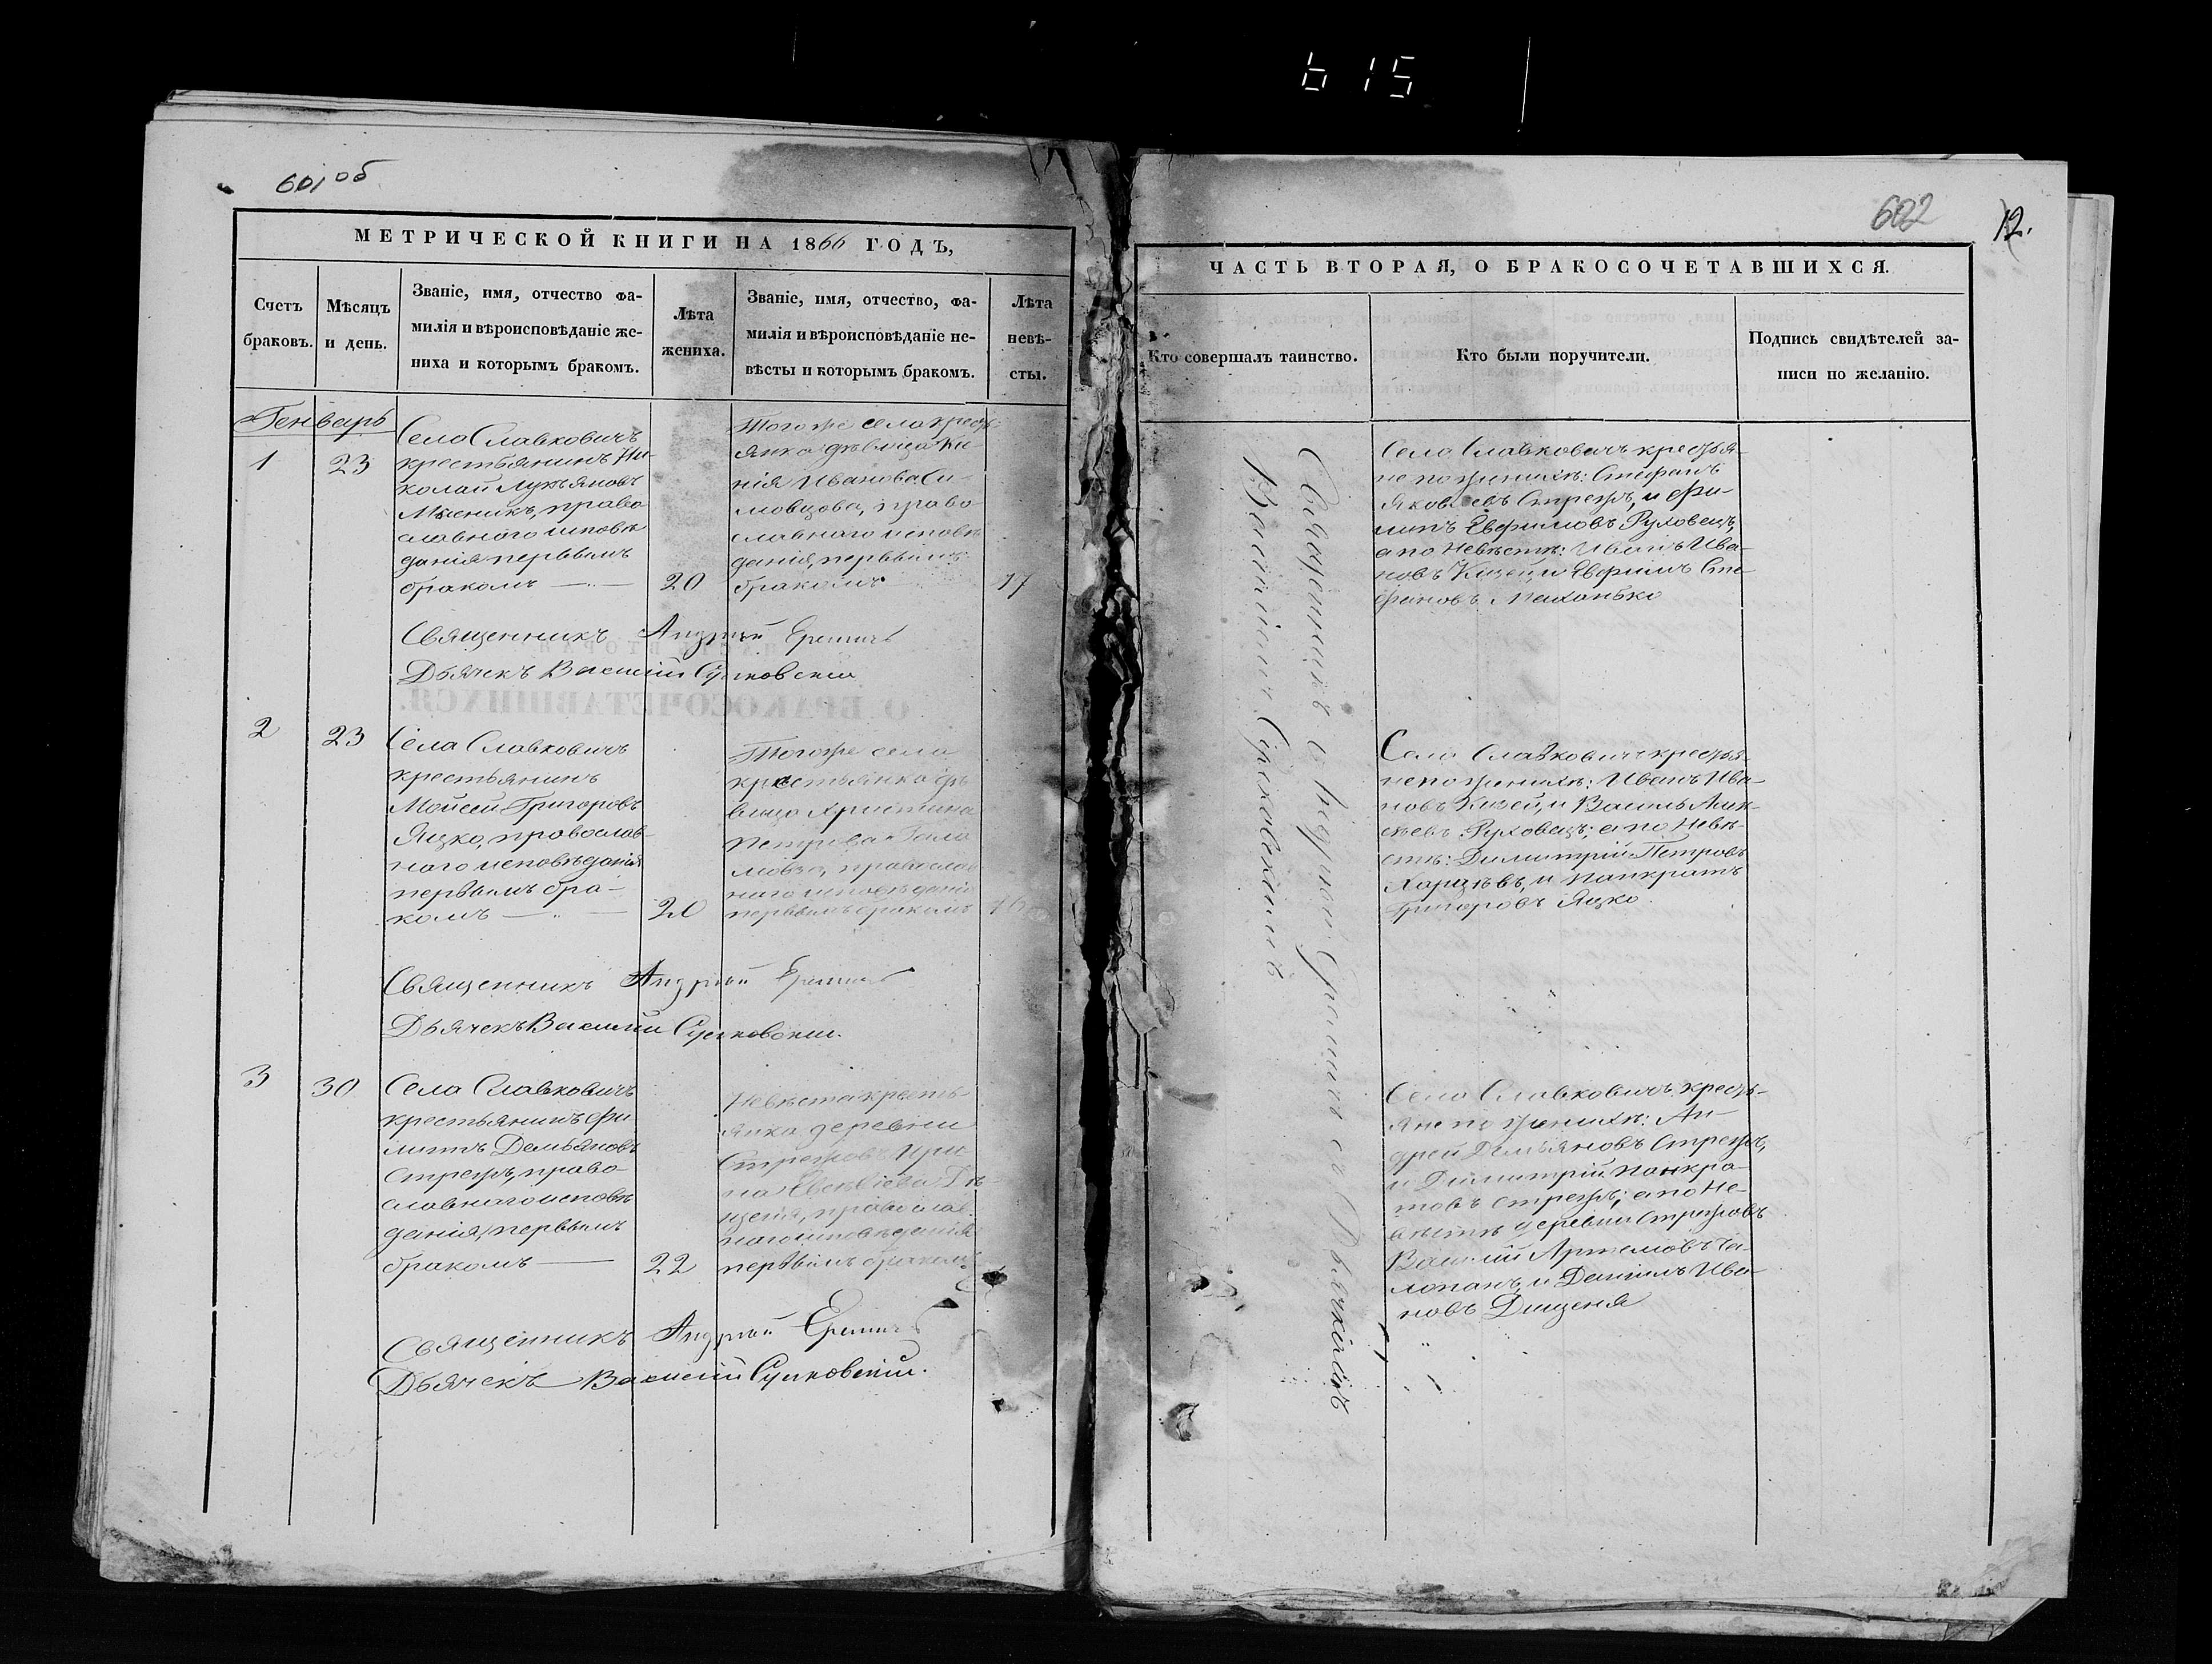 615
601 об
МЕТРИЧЕСКОЙ КНИГИ НА 1866 ГОДЪ,
Счетъ браковъ.
Мѣсяцъ и день.
Званіе, имя, отчество фа-
милія и вѣроисповѣданіе же-
ниха и которымъ бракомъ.
Лѣта
жениха.
Званіе, имя, отчество, фа-
милія и вѣроисповѣданіе не-
вѣсты и которымъ бракомъ.
Лѣта
невѣ-
сты.
Генварь
1
23
Села Славковичъ
крестьянинъ Ни-
колай Лукьяновъ
право
славного исповѣ
данія первымъ
бракомъ
20
Тогоже села кресть
янка дѣвица
нія Иванова Си
мовцова, право
славнаго исповѣ
данія, первымъ
бракомъ
17
Священникъ Андрей
Дьячекъ Василій
О БРАКОСОЧЕТАВШИХСЯ.
2
23
Села Славковичъ
крестьянинъ
Мойсей Григоровъ
Яцко, православ-
наго исповѣданія
первымъ бра-
комъ
20
Тогоже села
крестьянка дѣ
вица Христина
Петрова
православ
наго исповѣданія
первымъ бракомъ
Священникъ Андрей
Дьячекъ Василій
3
30
Села Славковичъ
крестьянинъ Фи
липъ Демьяновъ
Стрежъ, право-
славнаго исповѣ
данія, первымъ
бракомъ
22
Невѣста кресть-
янка деревни
Стрежовъ Ири
на
православ
наго исповѣданія
первымъ бракомъ
Священникъ Андрей
Дьячекъ Василій
602
12.
ЧАСТЬ ВТОРАЯ, О БРАКОСОЧЕТАВШИХСЯ.
Кто совершалъ таинство.
Кто были поручители.
Подпись свидѣтелей за-
писи по желанію.
Священникъ Андрей съ Дьячкомъ
Василіемъ
Села Славковичъ крестья-
не по женихѣ: Стефанъ
Яковлевъ Стрежъ, и Фи-
липъ Евфимовъ Руховецъ,
а по Невѣстѣ: Иванъ Ива-
новъ и Евфимъ Сте-
фановъ
Села Славковичъ крестья-
не по женихѣ: Иванъ Ива-
новъ и Василь Алек-
сѣевъ Руховецъ; а по Невѣ-
стѣ: Димитрій Петровъ
и Панкратъ
Григоровъ Яцко
Села Славковичъ кресть-
яне по женихѣ: Ан-
дрей Демьяновъ Стрежъ,
и Димитрій Панкра-
товъ Стрежъ; а по Не-
вѣстѣ деревни Стрежовъ
Василій Артемовъ
и Даніилъ Ива-
новъ Дищеня